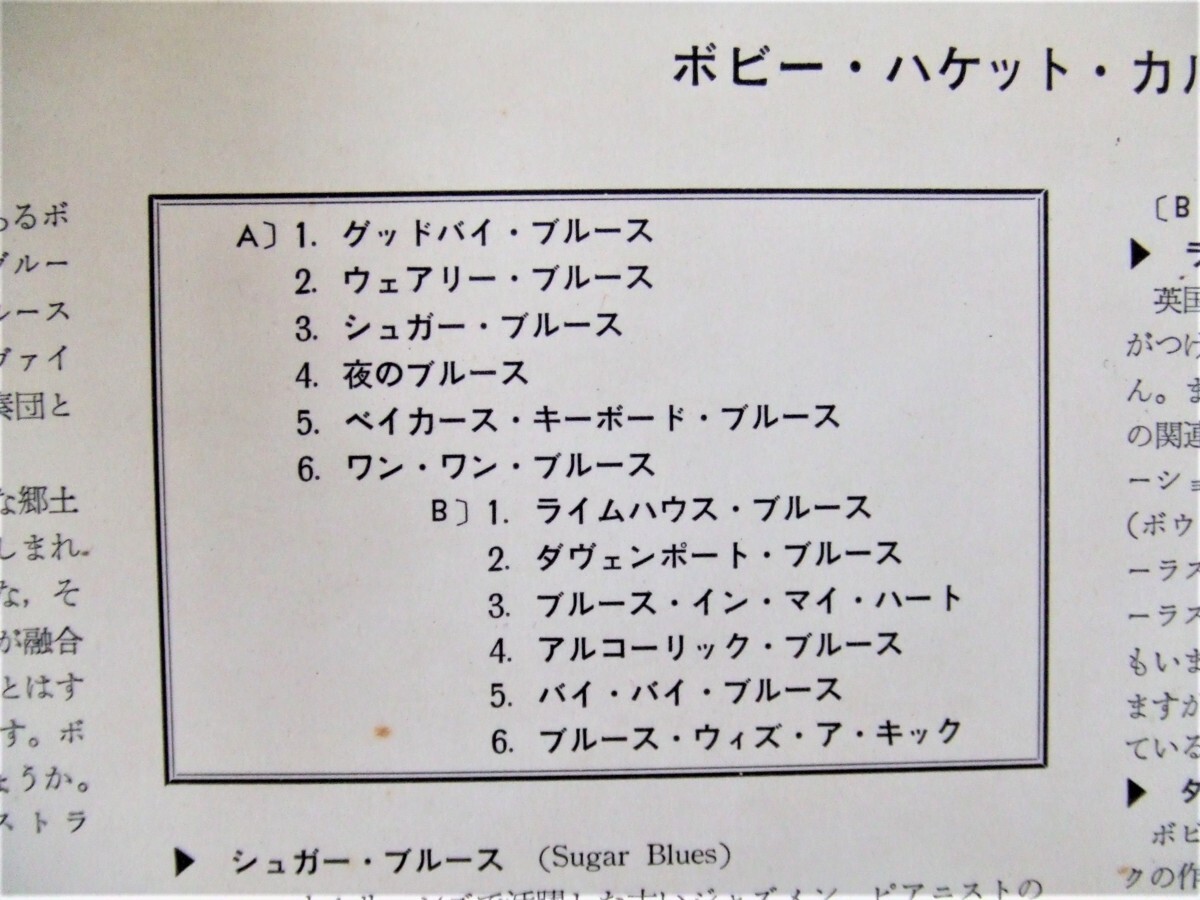 ボビー・ハケット・カル
るボ
グルー
ルース
ヴァイ
奏団と
な郷土
しまれ
な，そ
が融合
とはす
す。ボ
ょうか。
ストラ
A〕1. グッドバイ・ブルース
2. ウェアリー・ブルース
3. シュガー・ブルース
4. 夜のブルース
5. ベイカース・キーボード・ブルース
6. ワン・ワン・ブルース
B〕1. ライムハウス・ブルース
2. ダヴェンポート・ブルース
3. ブルース・イン・マイ・ハート
4. アルコーリック・ブルース
5. バイ・バイ・ブルース
6. ブルース・ウィズ・ア・キック
▶ シュガー・ブルース (Sugar Blues)
で活躍した古いジャズメン，ピアニストの
〔B
▶ ラ
英国
がつけ
ん。ま
の関連
ーショ
(ボウ
ーラス
ーラス
もいま
ますが
ている
▶ タ
ボビ
クの作